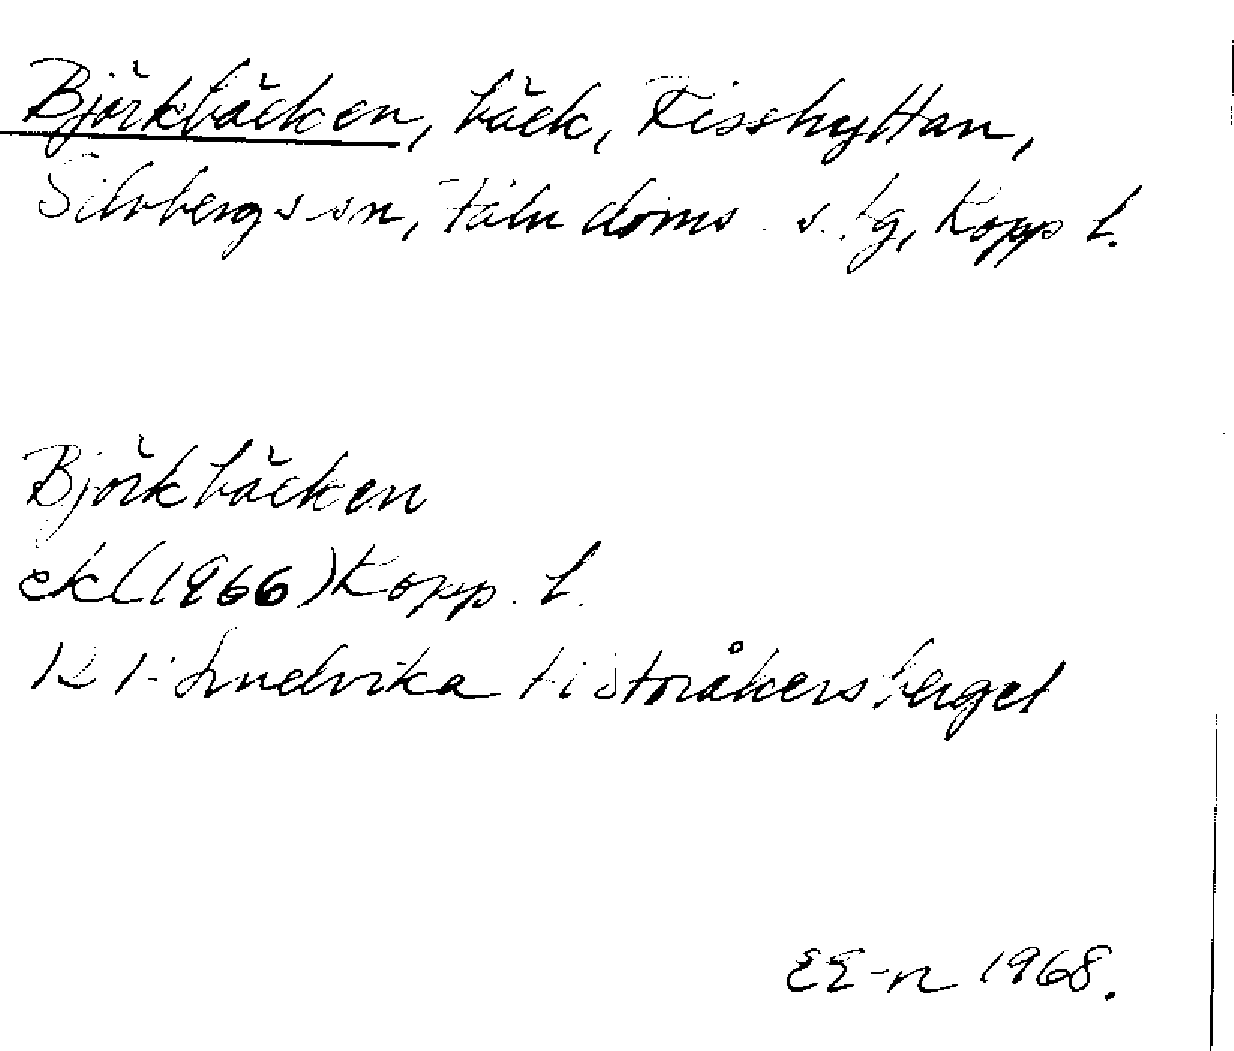 Björkbäcken, bäck, Fisshyttan,
Silvbergs sn, Falu doms s. tg, Kopp l.
Björkbäcken
ek (1966) Kopp. l.
Ludvika Storåkersberget
EE-n 1968.